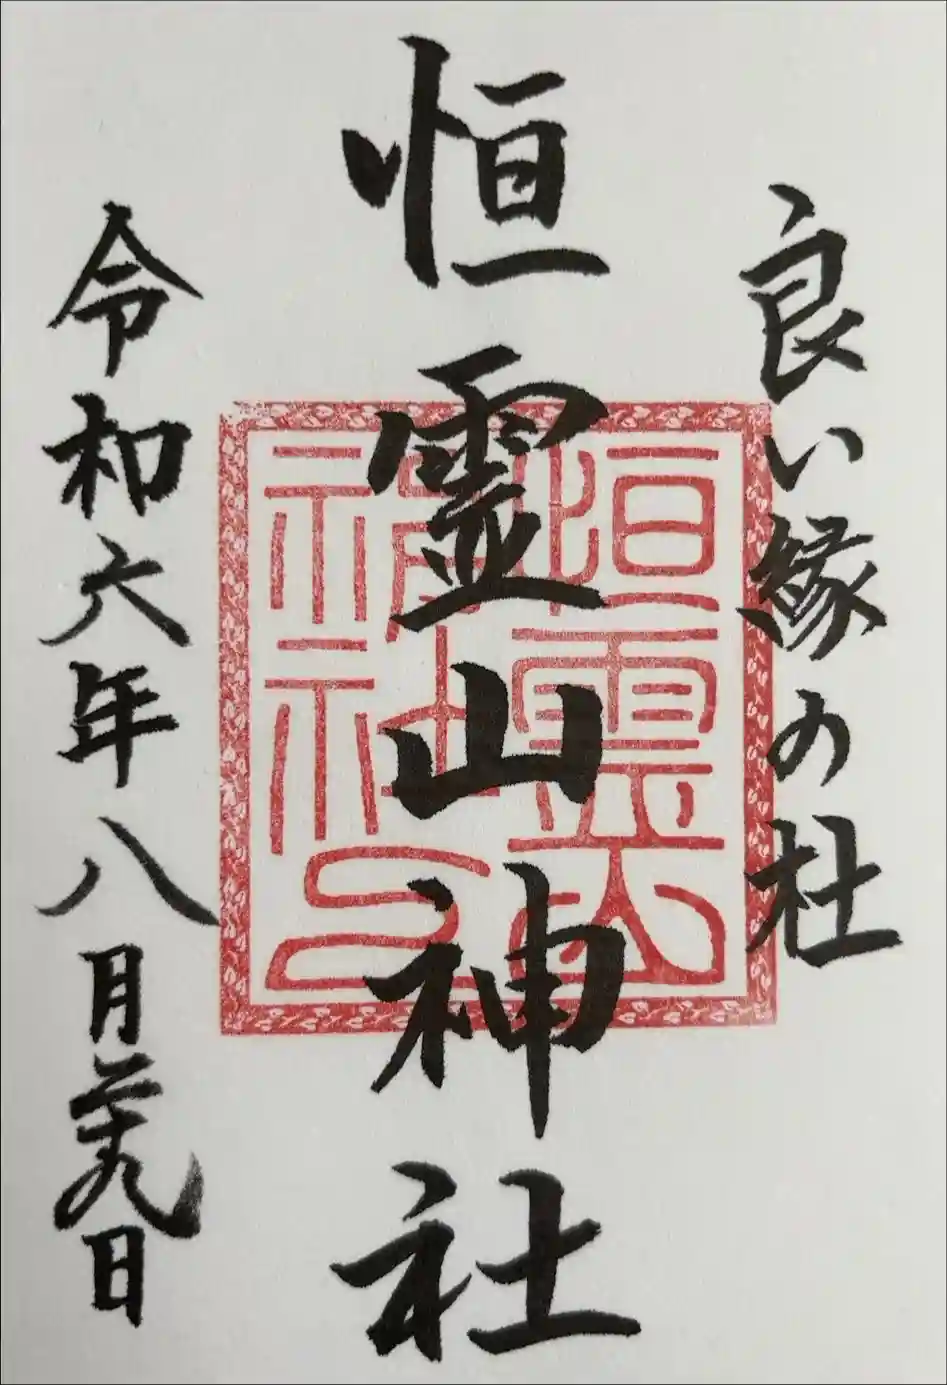 良い縁の杜
恒霊山神社
令和六年八月二十九日
恒霊山
神社之印